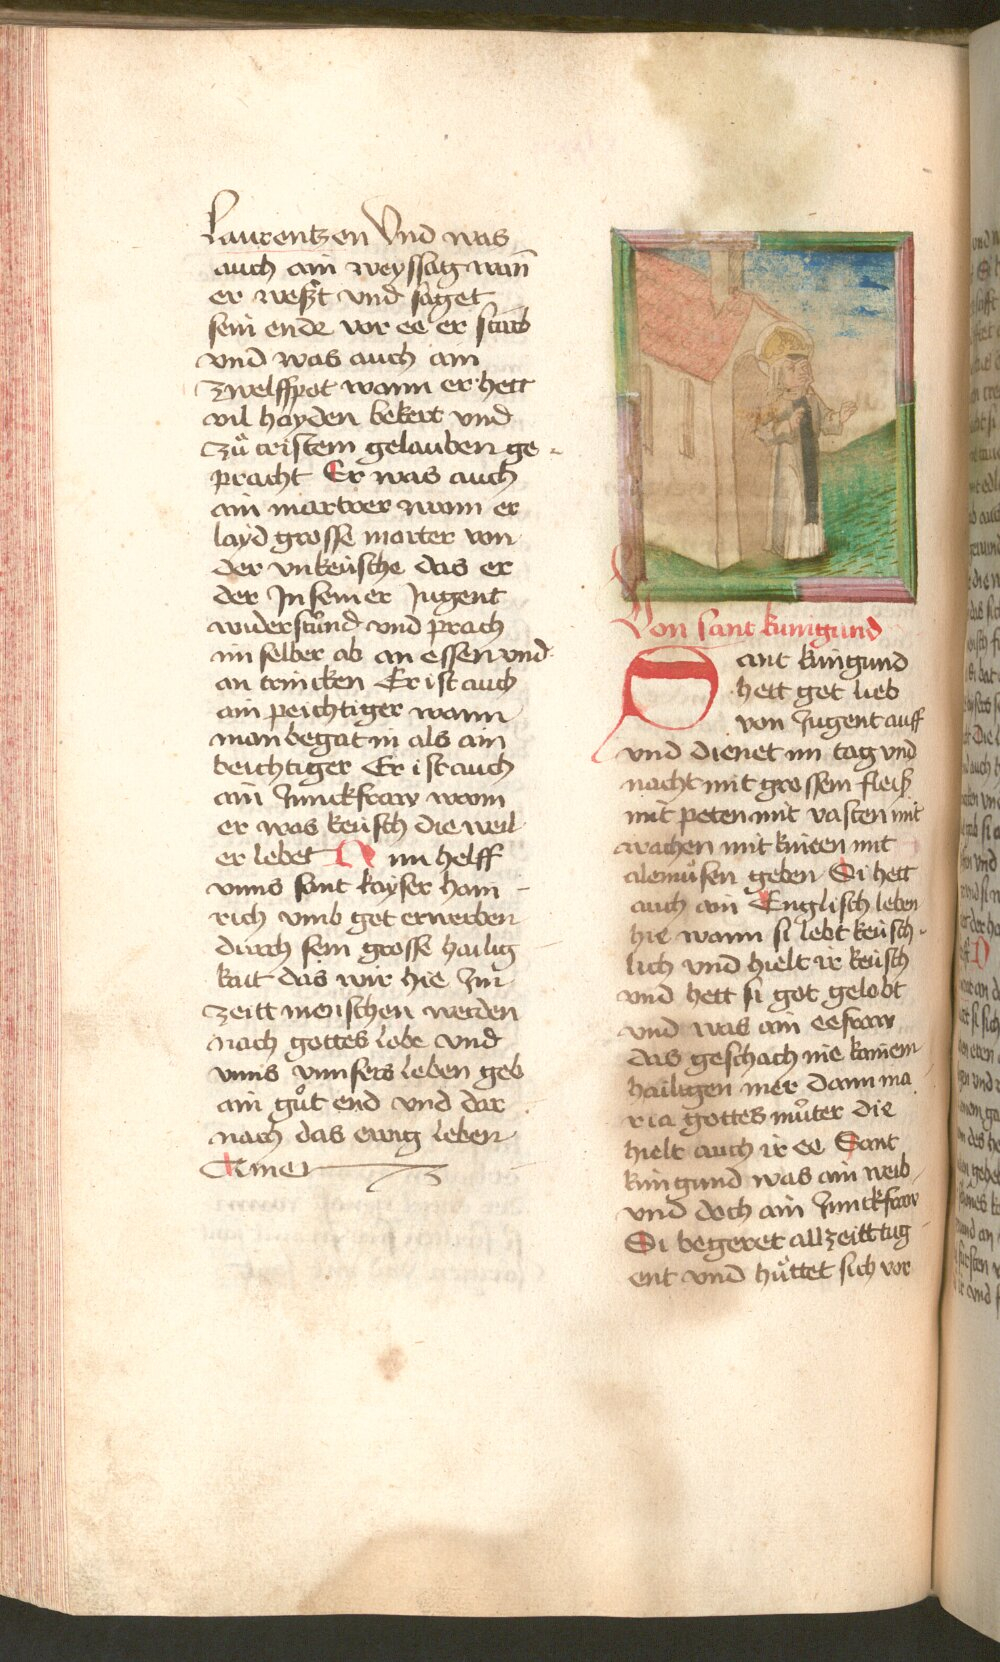 Laurentzen Vnd was
auch ain weyssag wan̄
er weſzt vnd saget
sein ende vor ee er starb
vnd was auch ain
zwelffpot wann er hett
vil hayden bekert vnd
zů cristem gelauben ge
pracht Er was auch
ain martrer wann er
layd grosse marter von
der vnkeüsche das er
der In seiner Jugent
widerstůnd vnd prach
im selber ab an essen vnd
an trincken Er ist auch
ain peichtiger wann
man begat in als ain
beichtiger Er ist auch
ain Junckfraw wann
er was keüsch die weil
er lebet Nun helff
vnns sant kayser hain
rich vmb got erwerben
durch sein grosse hailig
kait das wir hie Inn
zeitt menschen werden
nach gottes lobe vnd
vnns vnnsers leben geb
ain gůt end vnd dar
nach das ewig leben
Amen
Von sant kunigund
Sant kungund
hett got lieb
von Jugent auff
vnd dienet im tag vnd
nacht mit grossem fleiß
mit peten mit vasten mit
wachen mit knieen mit
alemůsen geben Si hett
auch ain Englisch leben
hie wann si lebt keüsch
lich vnd hielt ir keüsch
vnd hett si got gelobt
vnd was ain eefraw
das geschach nie kainem
hailigen mer dann ma
ria gottes můter die
hielt auch ir ee Sant
kungund was ain weib
vnd doch ain Junckfraw
Si begeret allzeitt tug
ent vnd hüttet sich vor